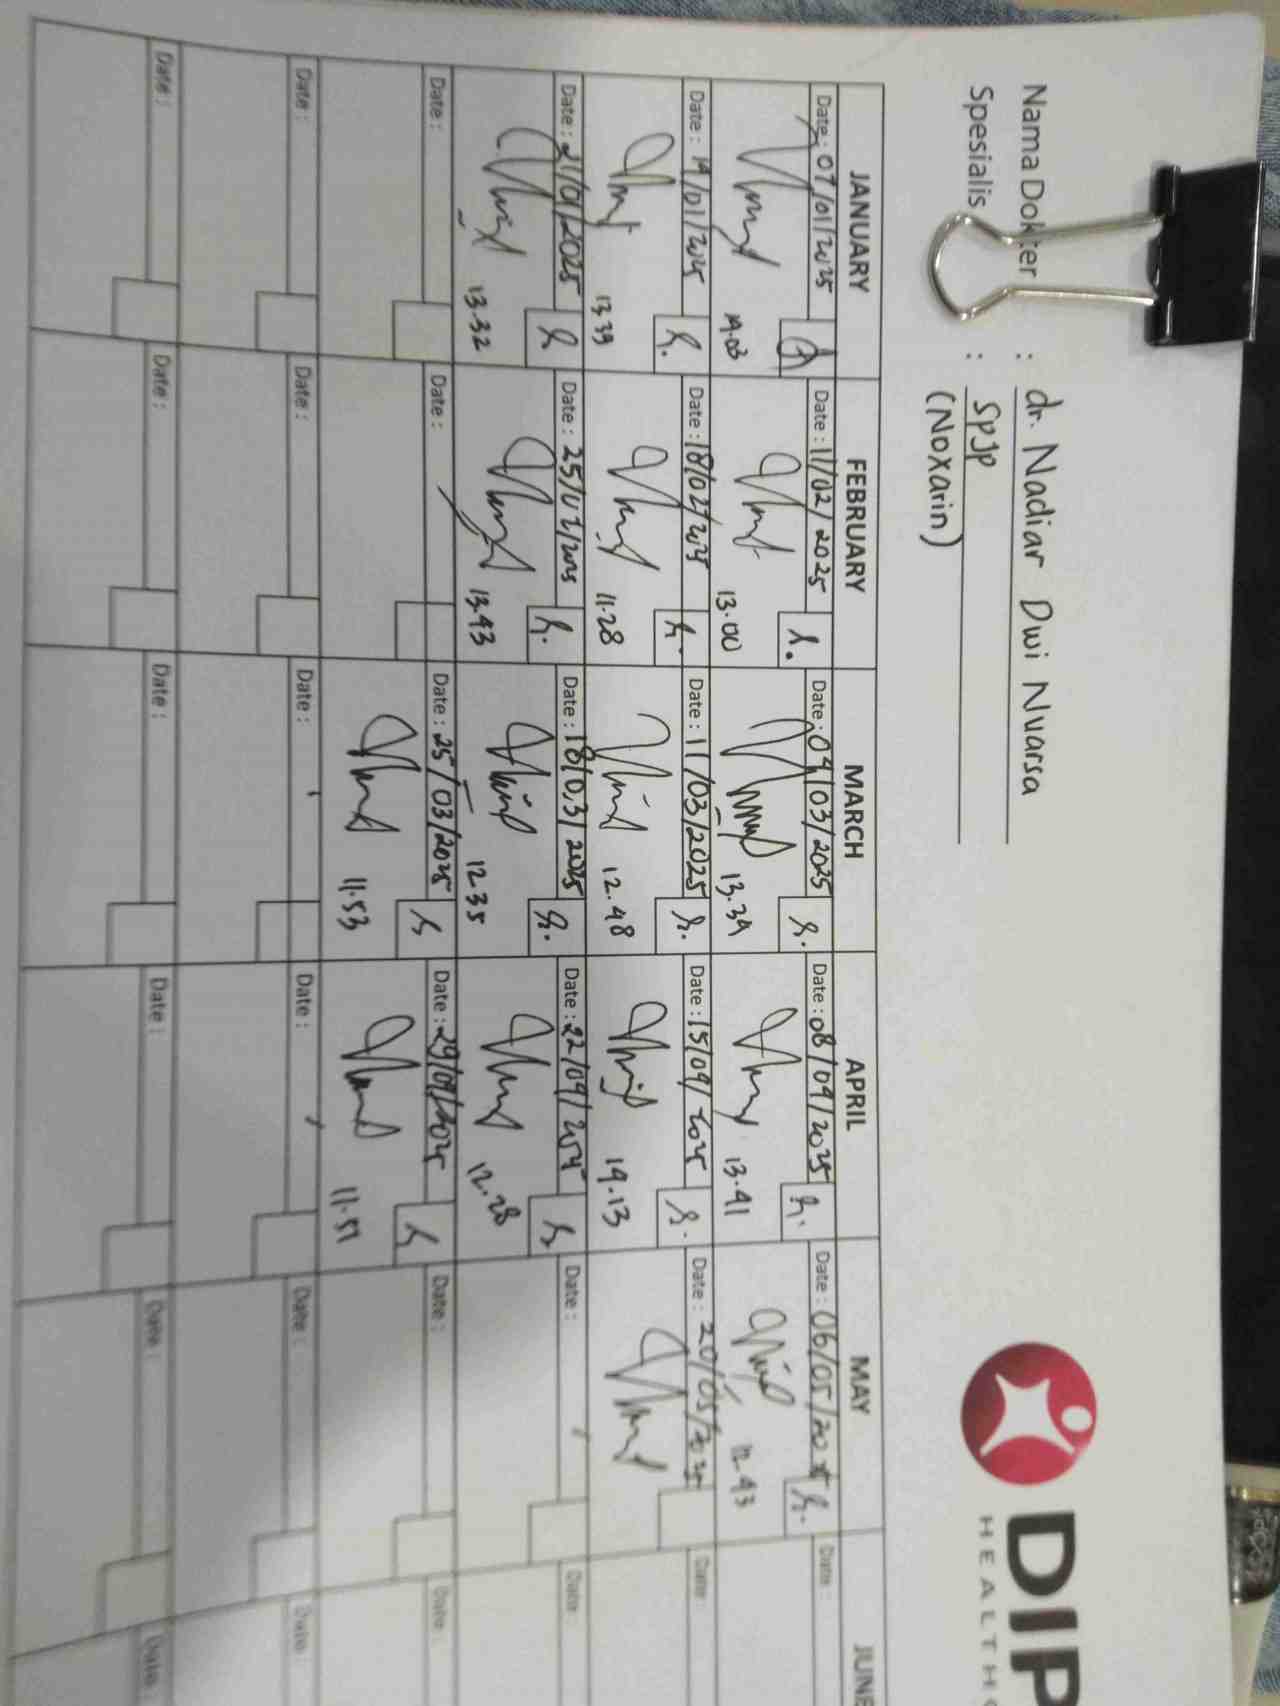 Nama Dokter : dr. Nadiar Dwi Nuarsa
Spesialis : SPJP
(Noxarin)
DIP
HEALTHC
JANUARY FEBRUARY MARCH APRIL MAY JUNE
Date : 07/01/2025 Date : 11/02/2025 Date : 04/03/2025 Date : 08/04/2025 Date : 06/05/2025 Date :
14.03 13.00 13.34 13.41 12.43
Date : 14/01/2025 Date : 18/02/2025 Date : 11/03/2025 Date : 15/04/2025 Date : 20/05/2025 Date :
13.39 11.28 12.48 14.13
Date : 21/01/2025 Date : 25/02/2025 Date : 18/03/2025 Date : 22/04/2025 Date : Date :
13.32 13.43 12.35 12.28
Date : Date : Date : 25/03/2025 Date : 29/04/2025 Date : Date :
11.53 11.51
Date : Date : Date : Date : Date : Date :
Date : Date : Date : Date : Date : Date :